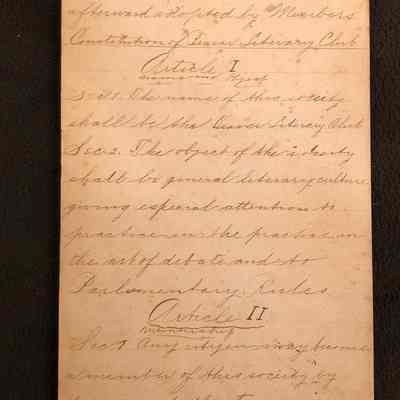 afterward adopted by Members
Constitution of Literary Club
Article I
name and object
Sec 1. The name of this society
shall be the Literary Club
Sec 2. The object of this society
shall be general literary culture
giving especial attention to
practice in the practice in
the art of debate and to
Parlamentary Rules
Article II
membership
Sec 1 Any citizen may become
a member of this society by